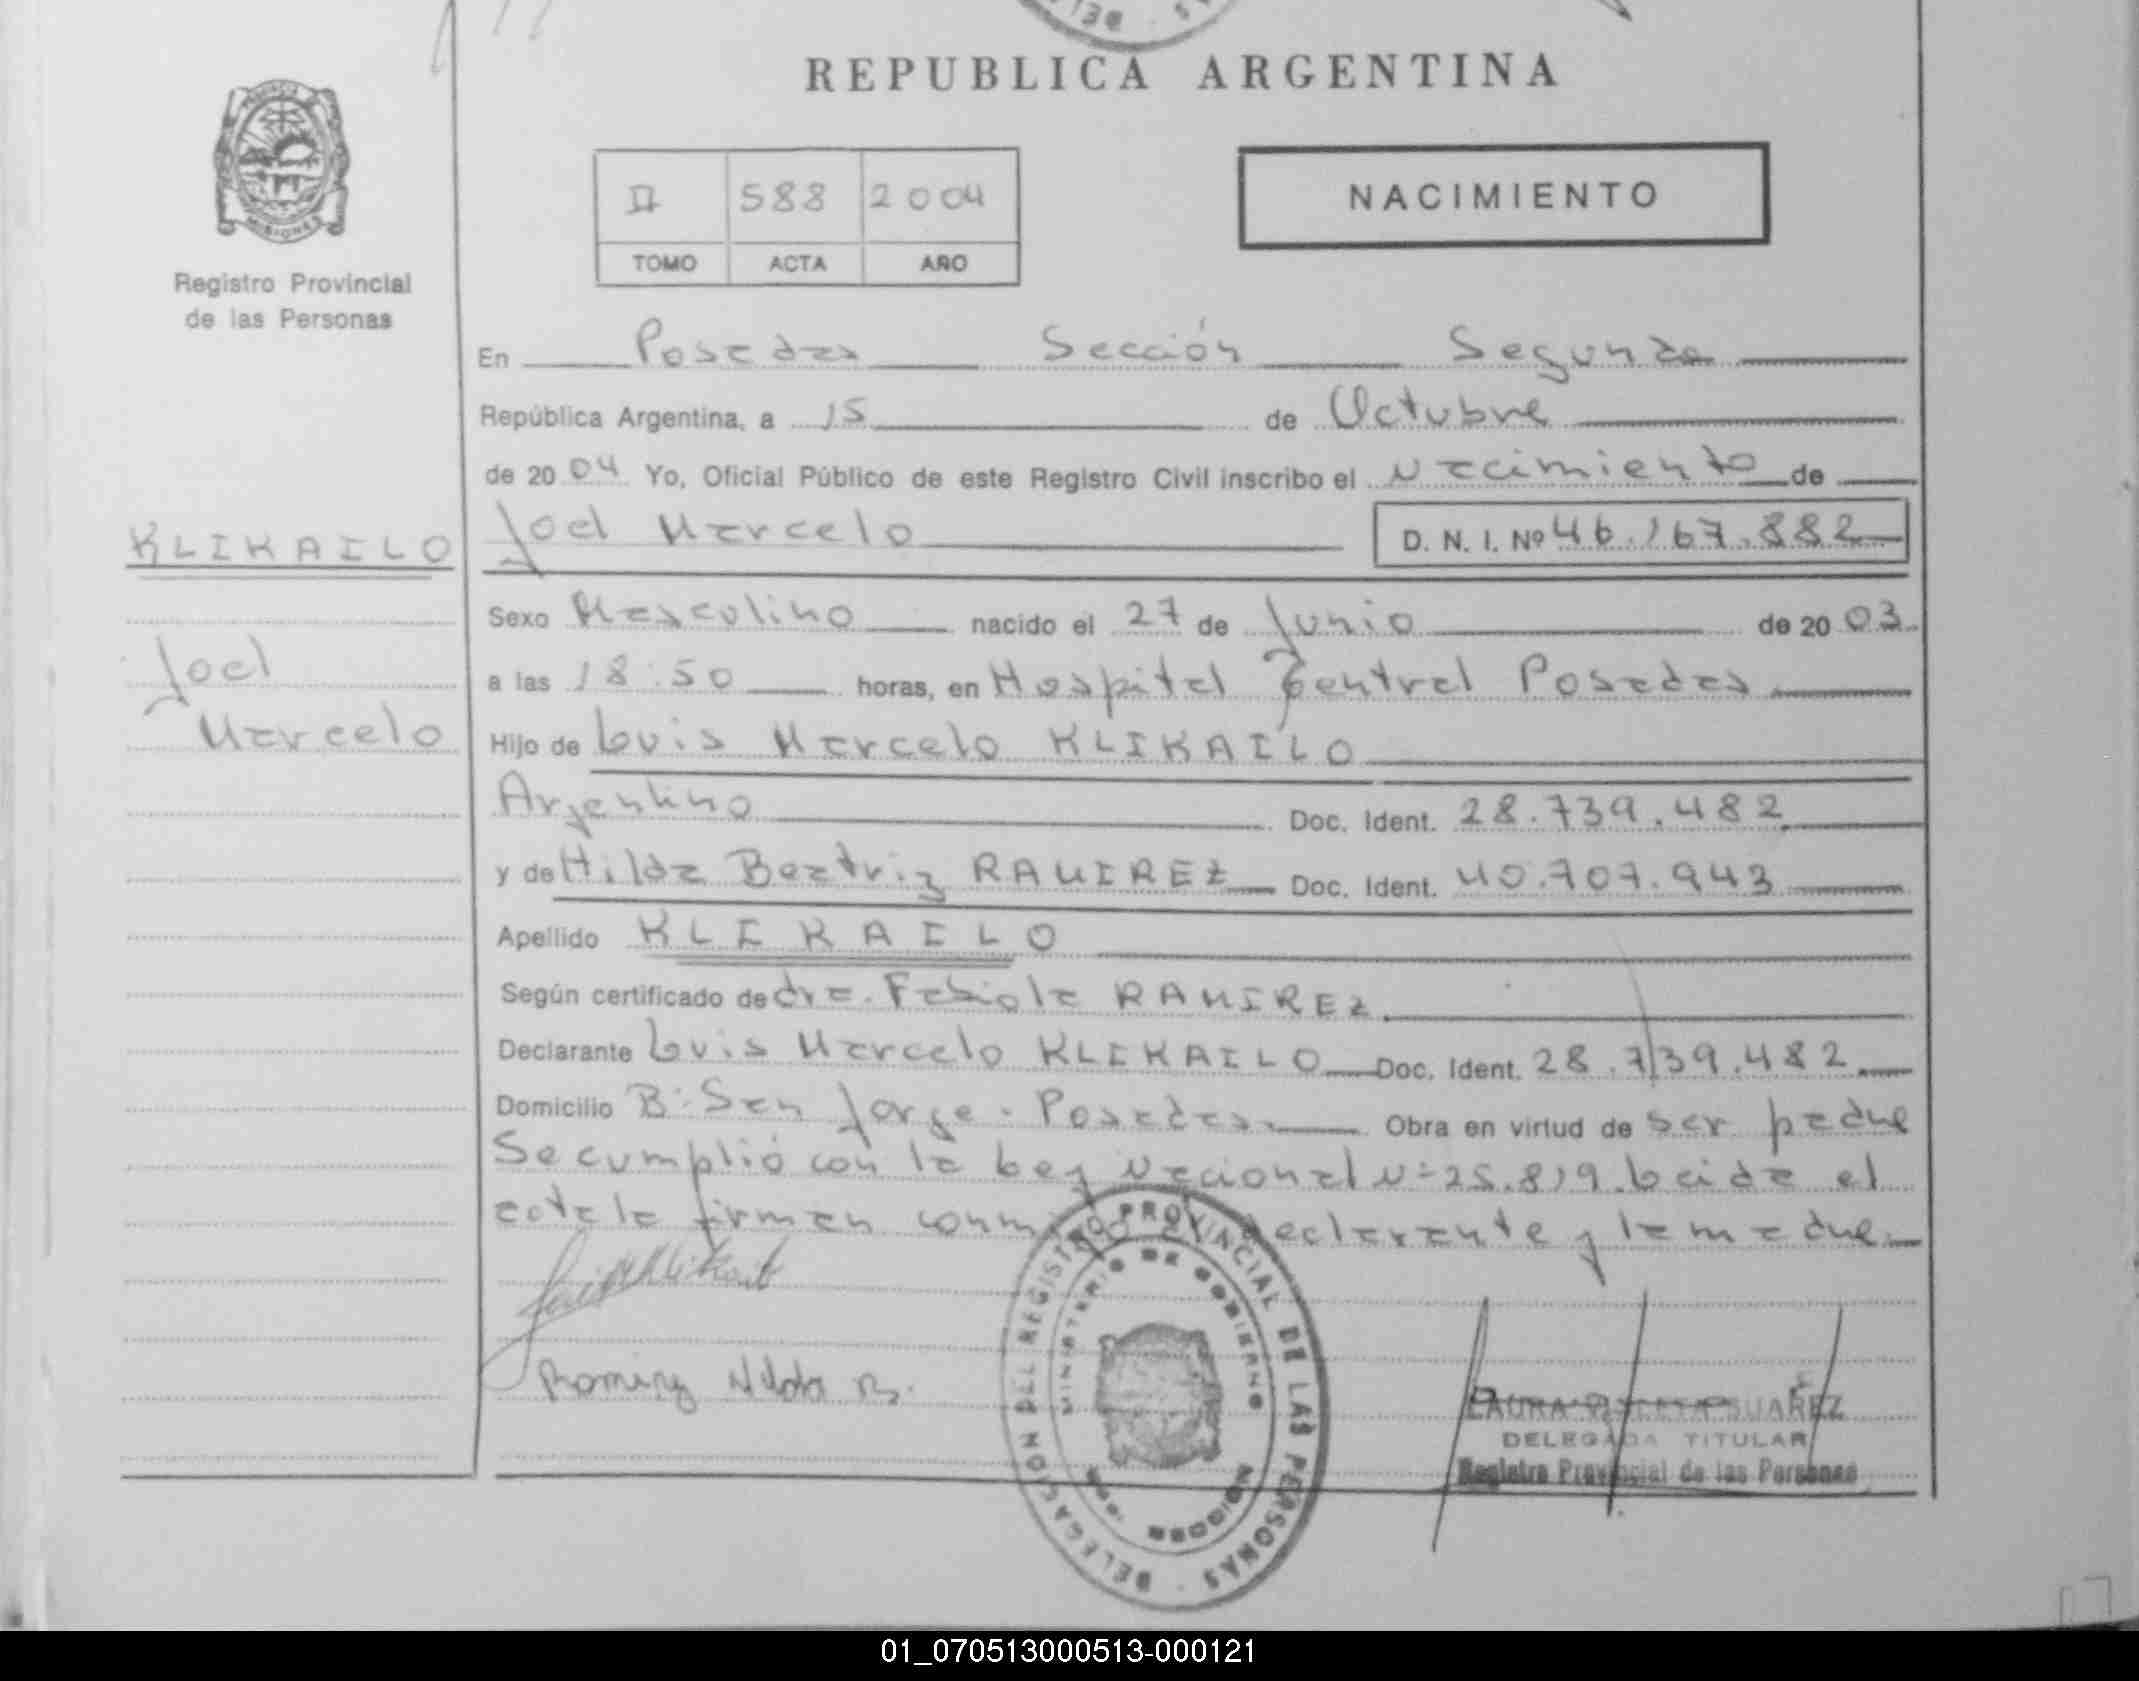 REPUBLICA ARGENTINA
II 588 2004
TOMO ACTA AÑO
NACIMIENTO
Registro Provincial
de las Personas
KLIKAILO
Joel
Marcelo
En Posadas Sección Segunda
República Argentina, a 15 de Octubre
de 2004 Yo, Oficial Público de este Registro Civil inscribo el Nacimiento de
Joel Marcelo D. N. I. Nº 46.167.882
Sexo Masculino nacido el 27 de Junio de 2003
a las 18:50 horas, en Hospital Central Posadas
Hijo de Luis Marcelo KLIKAILO
Argentino Doc. Ident. 28.739.482
y de Hilda Beatriz RAMIREZ Doc. Ident. 40.707.943
Apellido KLIKAILO
Según certificado de dra. Fabiola RAMIREZ
Declarante Luis Marcelo KLIKAILO Doc. Ident. 28.739.482
Domicilio B: San Jorge. Posadas. Obra en virtud de ser padre
Se cumplió con la Ley Nacional N=25.819. Leida el
acta la firman declarante y la madre.
DELEGACION DEL REGISTRO PROVINCIAL DE LAS PERSONAS
MINISTERIO DE GOBIERNO
LAURA SUAREZ
DELEGADA TITULAR
Registro Provincial de las Personas
01_070513000513-000121